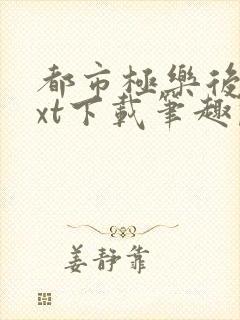 都市極樂後
xt下載筆趣
姜靜靠